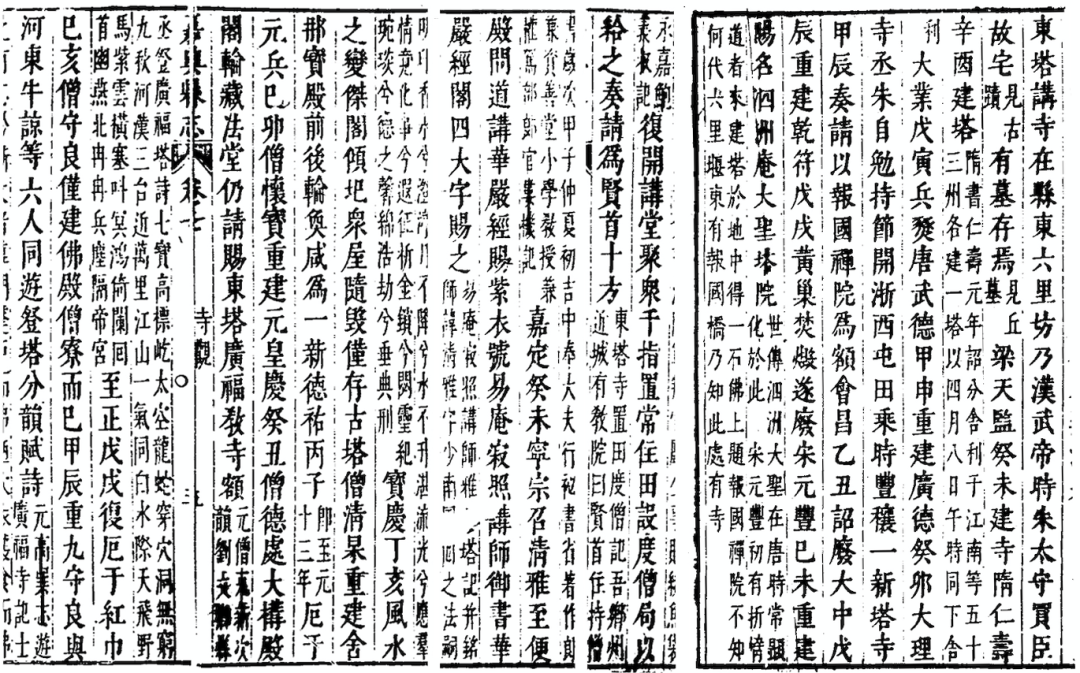 東塔講寺在縣東六里坊乃漢武帝時朱太守買臣
故宅見古蹟有墓存焉見丘墓梁天監癸未建寺隋仁壽
辛酉建塔隋書仁壽元年詔分舍利于江南等五十三州各建一塔以四月八日午時同下舍
利大業戊寅兵燹唐武德甲申重建廣德癸卯大理
寺丞朱自勉持節開浙西屯田乘時豐穰一新塔寺
甲辰奏請以報國禪院為額會昌乙丑詔廢大中戊
辰重建乾符戊戌黃巢焚燬遂廢宋元豐已未重建
陽名泗洲庵大聖塔院世傳泗洲大聖在唐時常顯化於此宋元豐初有折情
道者來建塔於地中得一石佛上題報國禪院不知
何代六里堰東有報國橋乃知此處有寺
永嘉
義叔記復開講堂聚衆千指置常住田設度僧局以
給之奏請爲賢首十方東塔寺置田度僧記吾鄉州近城有教院曰賢首住持僧
書歲次甲子仲夏初吉中奉大夫行秘書省著作郎
兼資善堂小學教授兼
權駕部郎官婁機記嘉定癸未寧宗召清雅至便
殿問道講華嚴經賜紫衣號易庵寂照講師御書華
嚴經閣四大字賜之易庵寂照講師雅塔記并銘師諱清雅字少南回之法嗣
明印香水兮澄渟月不降兮水不升湛流光兮應羣
情竟化爭兮遐征析金鎖兮閟靈紀
琬琰兮之磬綿浩劫兮垂典刑寶慶丁亥風水
之變傑閣傾圮衆屋隨毀僅存古塔僧清杲重建舍
那寶殿前後輪奐咸爲一新德祐丙子即至元十三年厄于
元兵已卯僧懷寶重建元皇慶癸丑僧德處大搆殿
閣輪藏法堂仍請賜東塔廣福教寺額
嘉興縣志 卷七 寺觀 五
丞登廣福塔詩七寶高標屹太空龍蛇穿穴洞無窮
九秋河漢三台近萬里江山一氣同白水際天飛野
馬紫雲橫塞叫冥鴻倚闌回
首幽燕北冉冉兵塵隔帝宮至正戊戌復厄于紅巾
已亥僧守良僅建佛殿僧寮而已甲辰重九守良與
河東牛諒等六人同遊登塔分韻賦詩元高巽志遊廣福寺記士